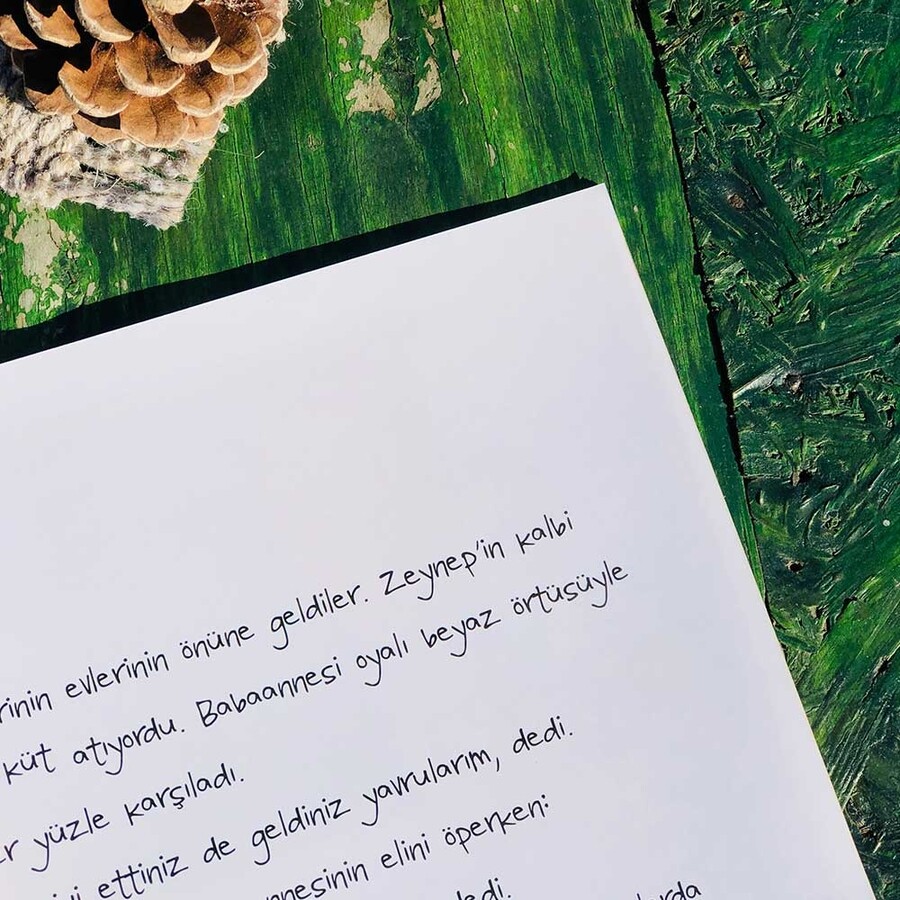 rinin evlerinin önüne geldiler. Zeynep'in kalbi
küt atıyordu. Babaannesi oyalı beyaz örtüsüyle
er yüzle karşıladı.
iyi ettiniz de geldiniz yavrularım, dedi.
nnesinin elini öperken:
dedi.